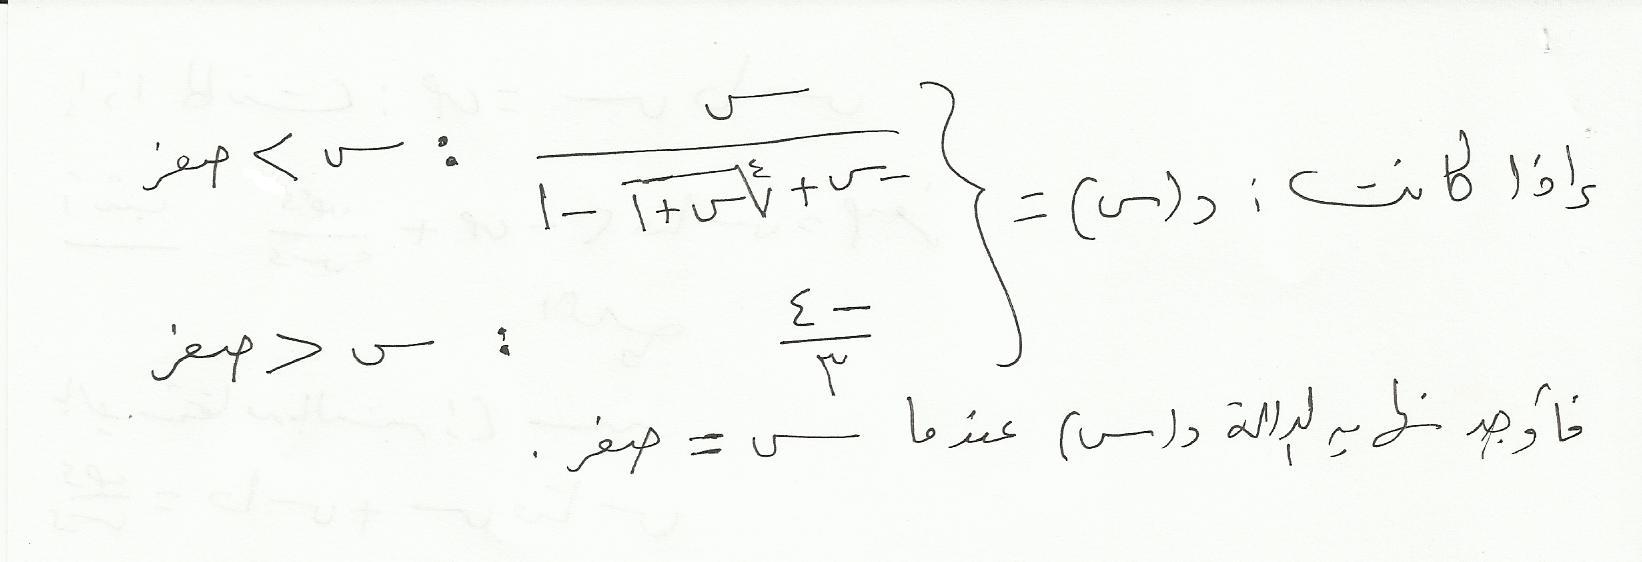 إذا كانت : د(س) = { س / (-س + ⁴√(س+١) - ١) : س > صفر
-٤/٣ : س < صفر
فأوجد نهايه الدالة د(س) عندما س = صفر .